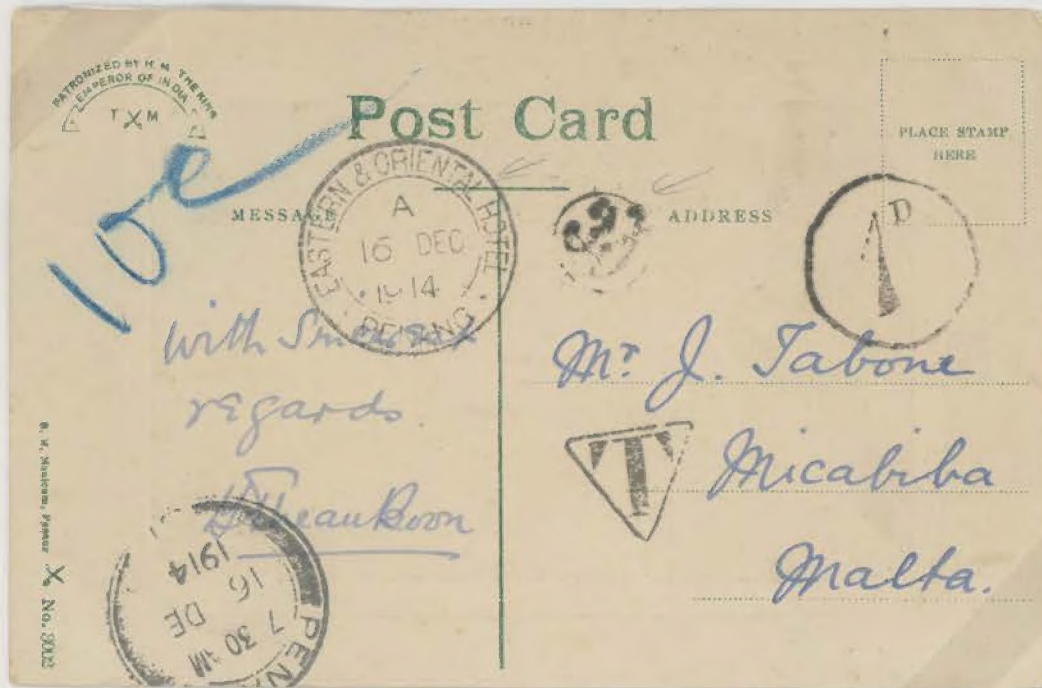 PATRONIZED BY H. M. THE KING
EMPEROR OF INDIA
T M
Post Card
PLACE STAMP
HERE
10c
MESSAGE
ADDRESS
EASTERN & ORIENTAL HOTEL
A
16 DEC
1914
PENANG
1D
With
regards.
Mr. J. Tabone
Micabiba
Malta.
T
PENA
7 30 AM
DE
16
1914
Penang
No.